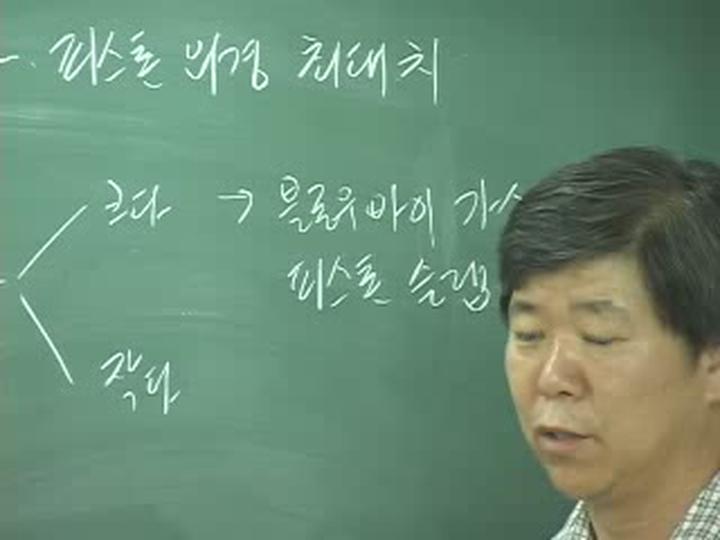 피스톤 외경 최대치
크다 → 블로우바이 가스
피스톤 슬랩
작다